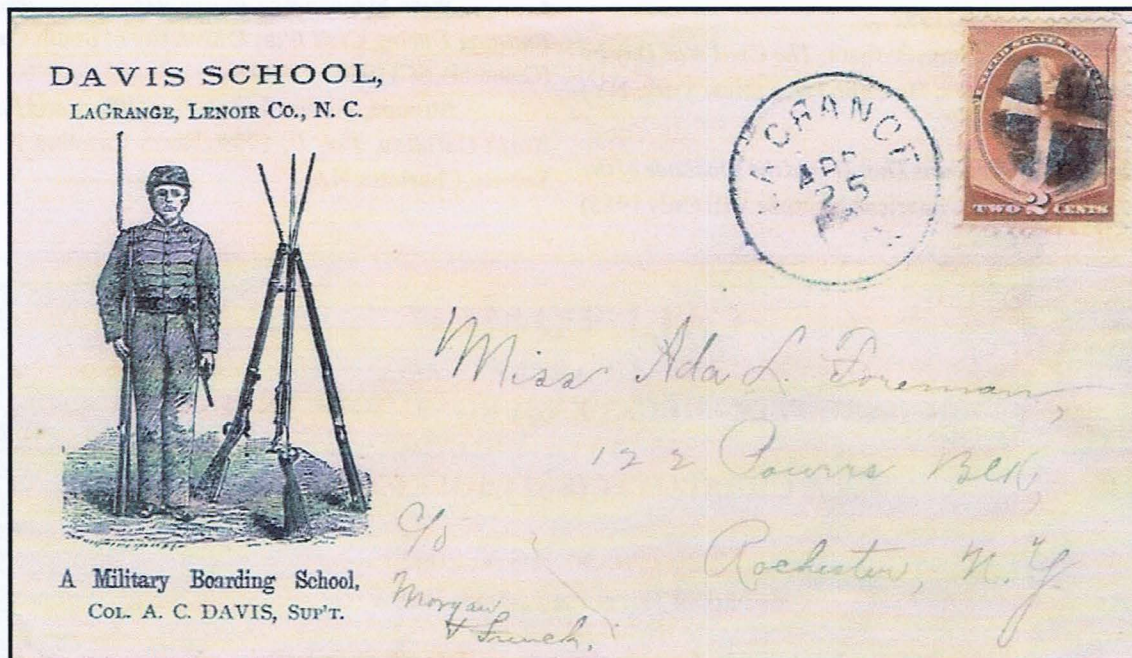 DAVIS SCHOOL,
LAGRANGE, LENOIR CO., N. C.
A Military Boarding School,
COL. A. C. DAVIS, SUP'T.
LAGRANGE
APR
25
UNITED STATES
TWO 2 CENTS
Miss Ada L. Foreman,
122 Powers Blk,
Rochester, N.Y.
c/o
Morgan
&